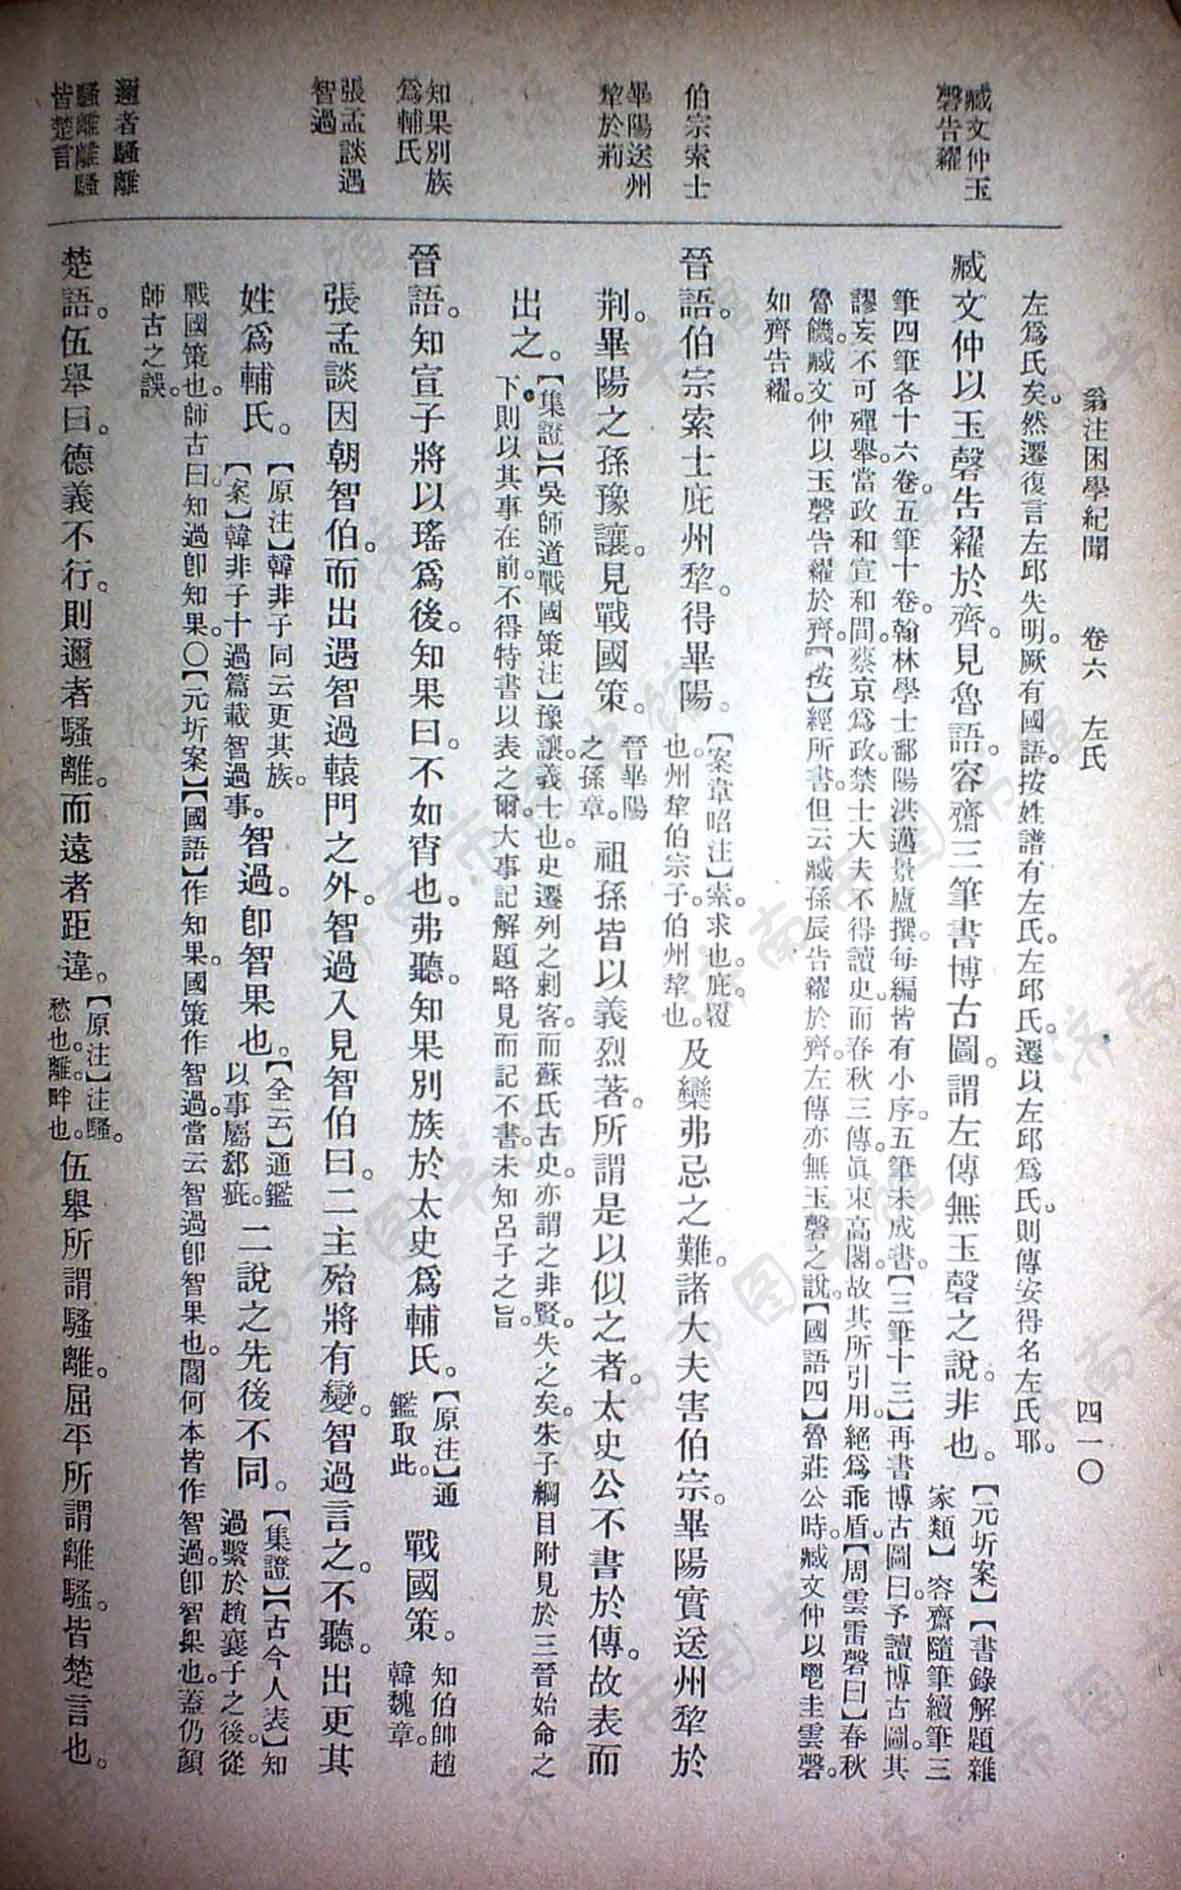 翁注困學紀聞　卷六　左氏　四一〇
左爲氏矣。然遷復言左邱失明。厥有國語。按姓譜有左氏。左邱氏。遷以左邱爲氏。則傳安得名左氏耶。
臧文仲玉
磬告糴
臧文仲以玉磬告糴於齊。見魯語。容齋三筆書博古圖。謂左傳無玉磬之說。非也。【元圻案】【書錄解題雜
家類】容齋隨筆續筆三
筆四筆各十六卷。五筆十卷。翰林學士鄱陽洪邁景廬撰。每編皆有小序。五筆未成書。【三筆十三】再書博古圖曰。予讀博古圖。其
謬妄不可殫舉。當政和宣和間。蔡京爲政。禁士大夫不得讀史。而春秋三傳。眞束高閣。故其所引用。絕爲乖盾。【周雲雷磬曰】春秋
魯饑。臧文仲以玉磬告糴於齊。【按】經所書。但云臧孫辰告糴於齊。左傳亦無玉磬之說。【國語四】魯莊公時。臧文仲以鬯圭雲磬。
如齊告糴。
伯宗索士
晉語。伯宗索士庇州犂。得畢陽。【案韋昭注】索。求也。庇。覆
也。州犂。伯宗子。伯州犂也。及欒弗忌之難。諸大夫害伯宗。畢陽實送州犂於
畢陽送州
犂於荊
荆。畢陽之孫豫讓。見戰國策。晉畢陽
之孫章。祖孫皆以義烈著。所謂是以似之者。太史公不書於傳。故表而
出之。【集證】【吳師道戰國策注】豫讓。義士也。史遷列之刺客。而蘇氏古史。亦謂之非賢。失之矣。朱子綱目附見於三晉始命之
下。則以其事在前。不得特書以表之爾。大事記解題略見而記不書。未知呂子之旨。
知果別族
爲輔氏
晉語。知宣子將以瑤爲後。知果曰。不如宵也。弗聽。知果別族於太史爲輔氏。【原注】通
鑑取此。戰國策。知伯帥趙
韓魏章。
張孟談遇
智過
張孟談因朝智伯。而出遇智過轅門之外。智過入見智伯曰。二主殆將有變。智過言之。不聽。出更其
姓爲輔氏。【原注】韓非子同云更其族。
【案】韓非子十過篇載智過事。智過。卽智果也。【全云】通鑑
以事屬郄疵。二說之先後不同。【集證】【古今人表】知
過繫於趙襄子之後。從
戰國策也。師古曰。知過卽知果。〇【元圻案】【國語】作知果。國策作智過。當云智過卽智果也。閻何本皆作智過。卽智果也。蓋仍顏
師古之誤。
邇者騷離
騷離離騷
皆楚言
楚語。伍舉曰。德義不行。則邇者騷離。而遠者距違。【原注】注騷。
愁也。離。畔也。伍舉所謂騷離。屈平所謂離騷。皆楚言也。